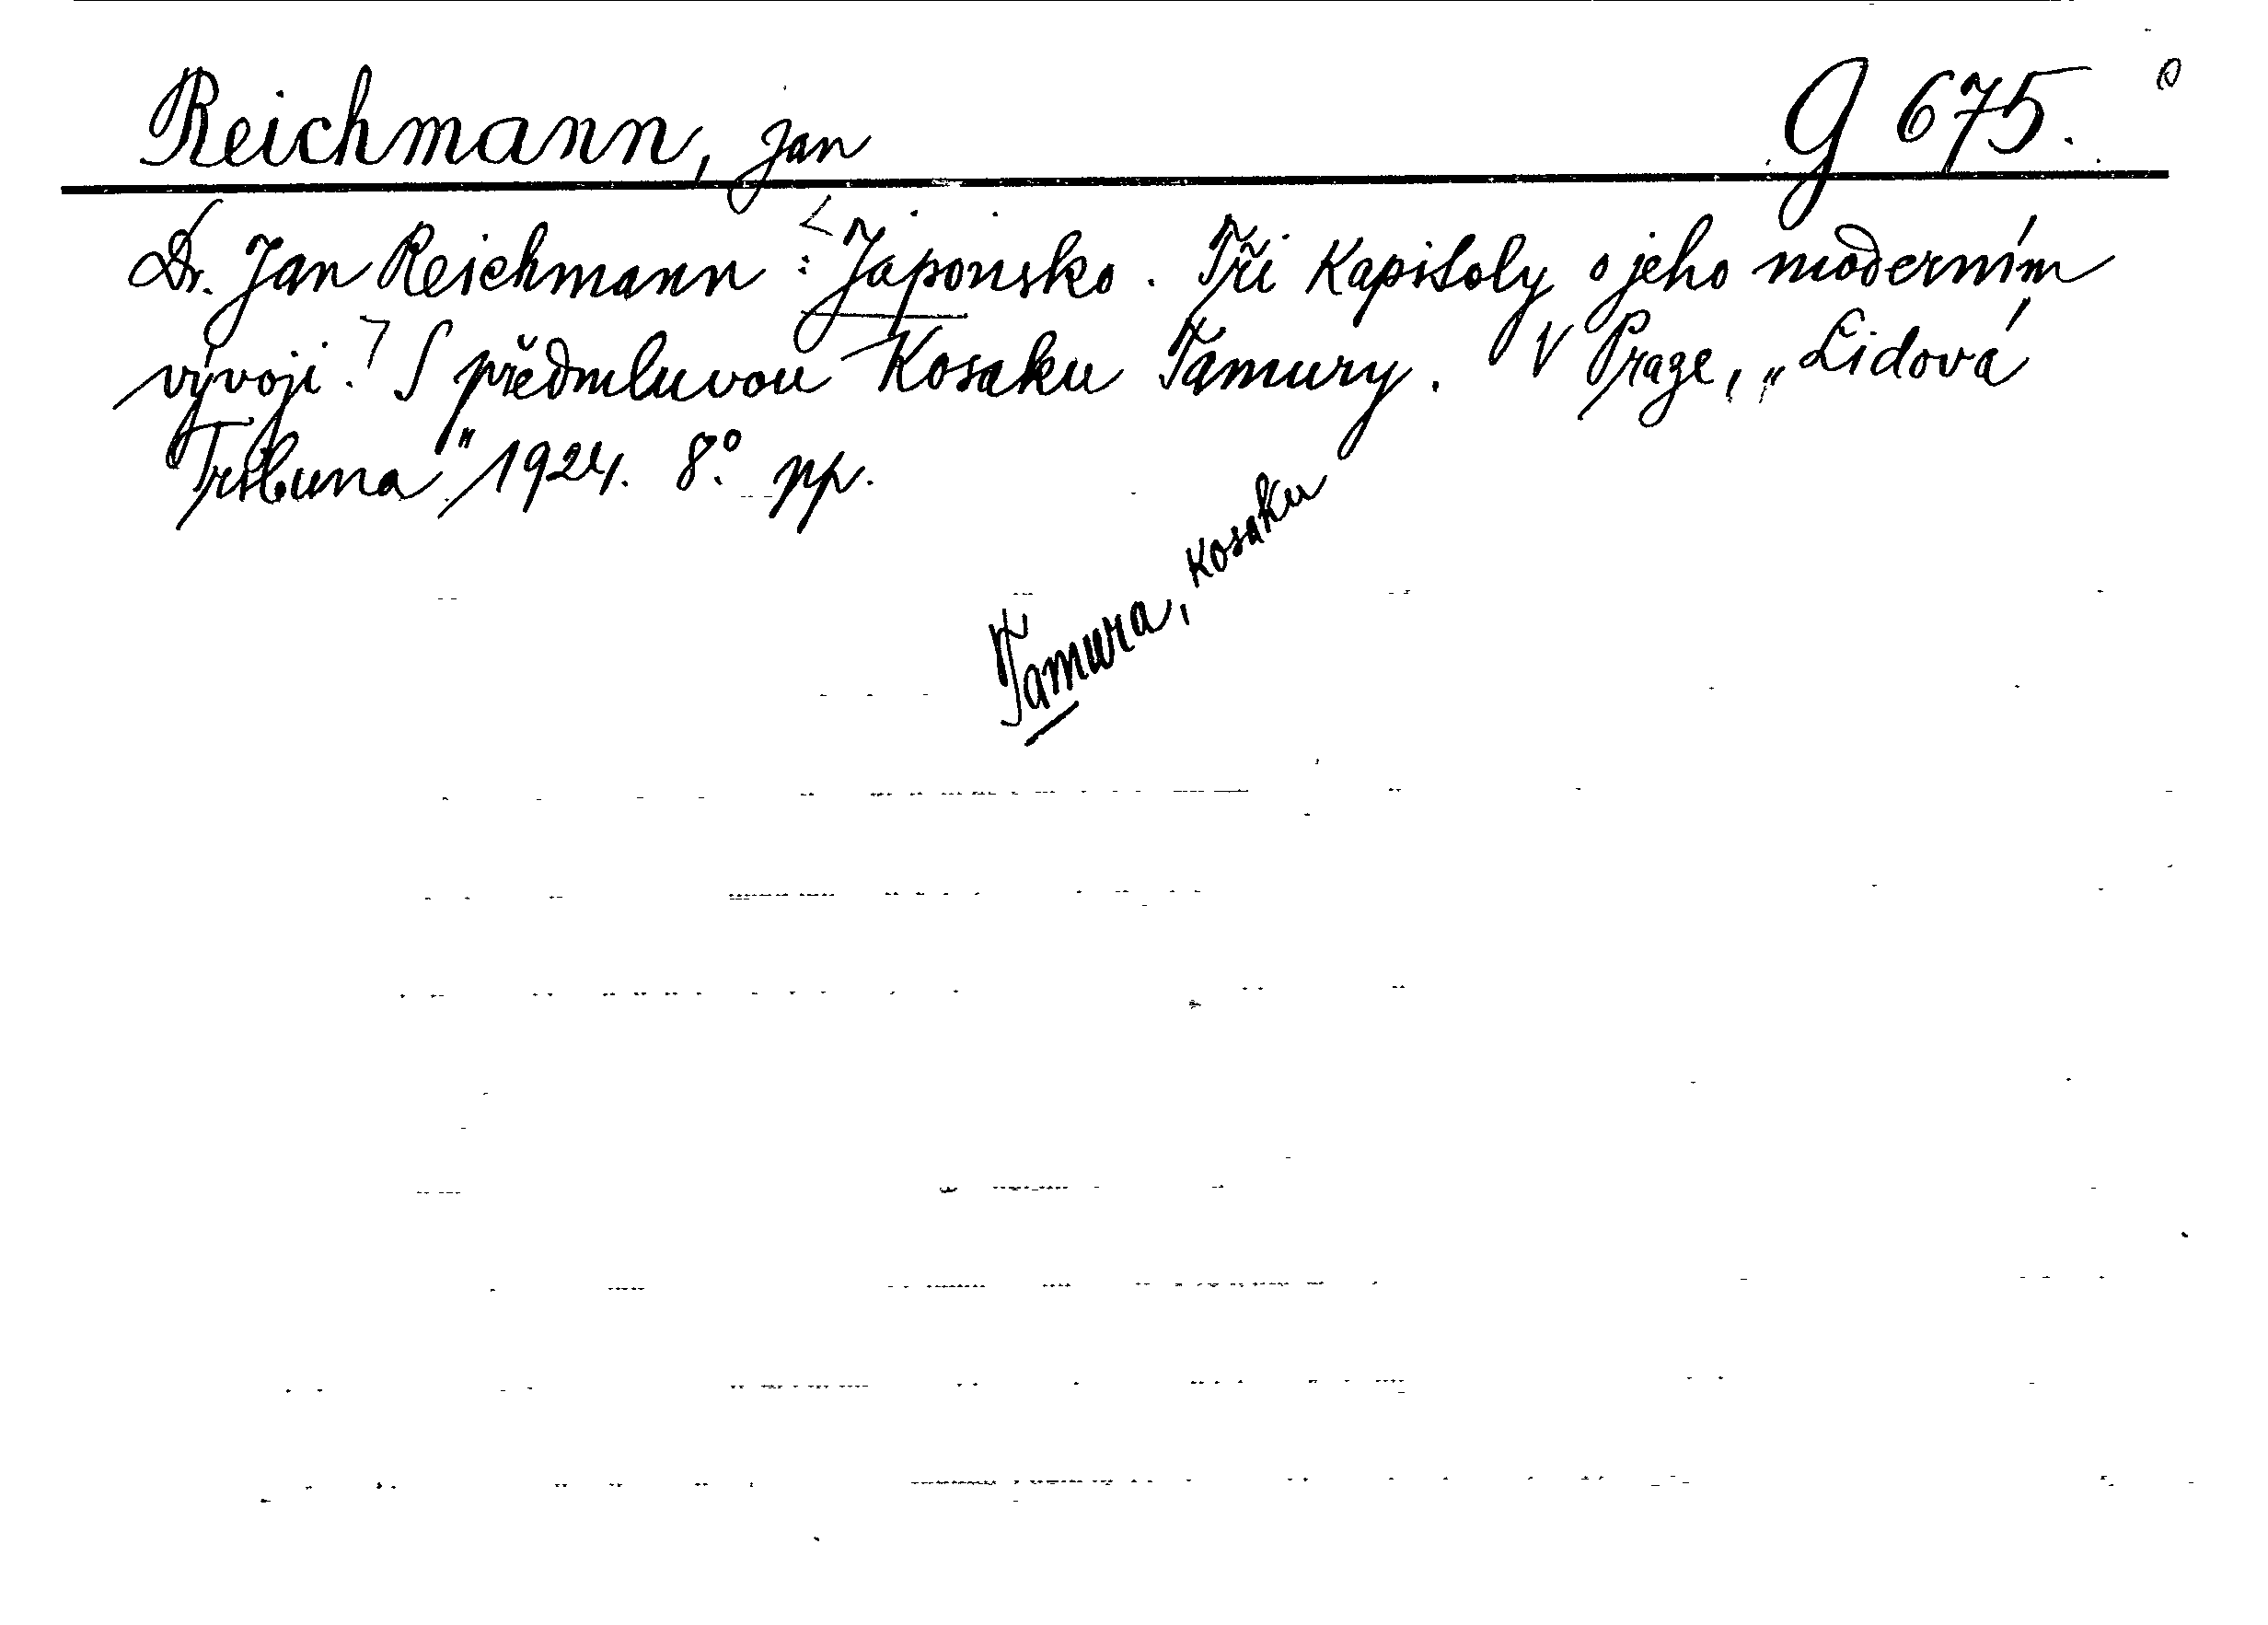 Reichmann, Jan G 675.
Dr. Jan Reichmann : Japonsko. Tři Kapitoly o jeho moderním
vývoji. S předmluvou Kosaku Tamury. V Praze, „Lidová
Tribuna" 1924. 8° pp.
Tamura, Kosaku